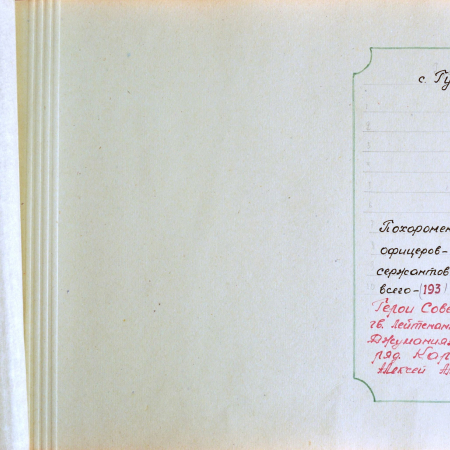 с. Гу
Похоронен
офицеров-
сержантов
всего-(193)
Герои Сове
гв. лейтенан
Джумания
ряд. Кар
Алексей